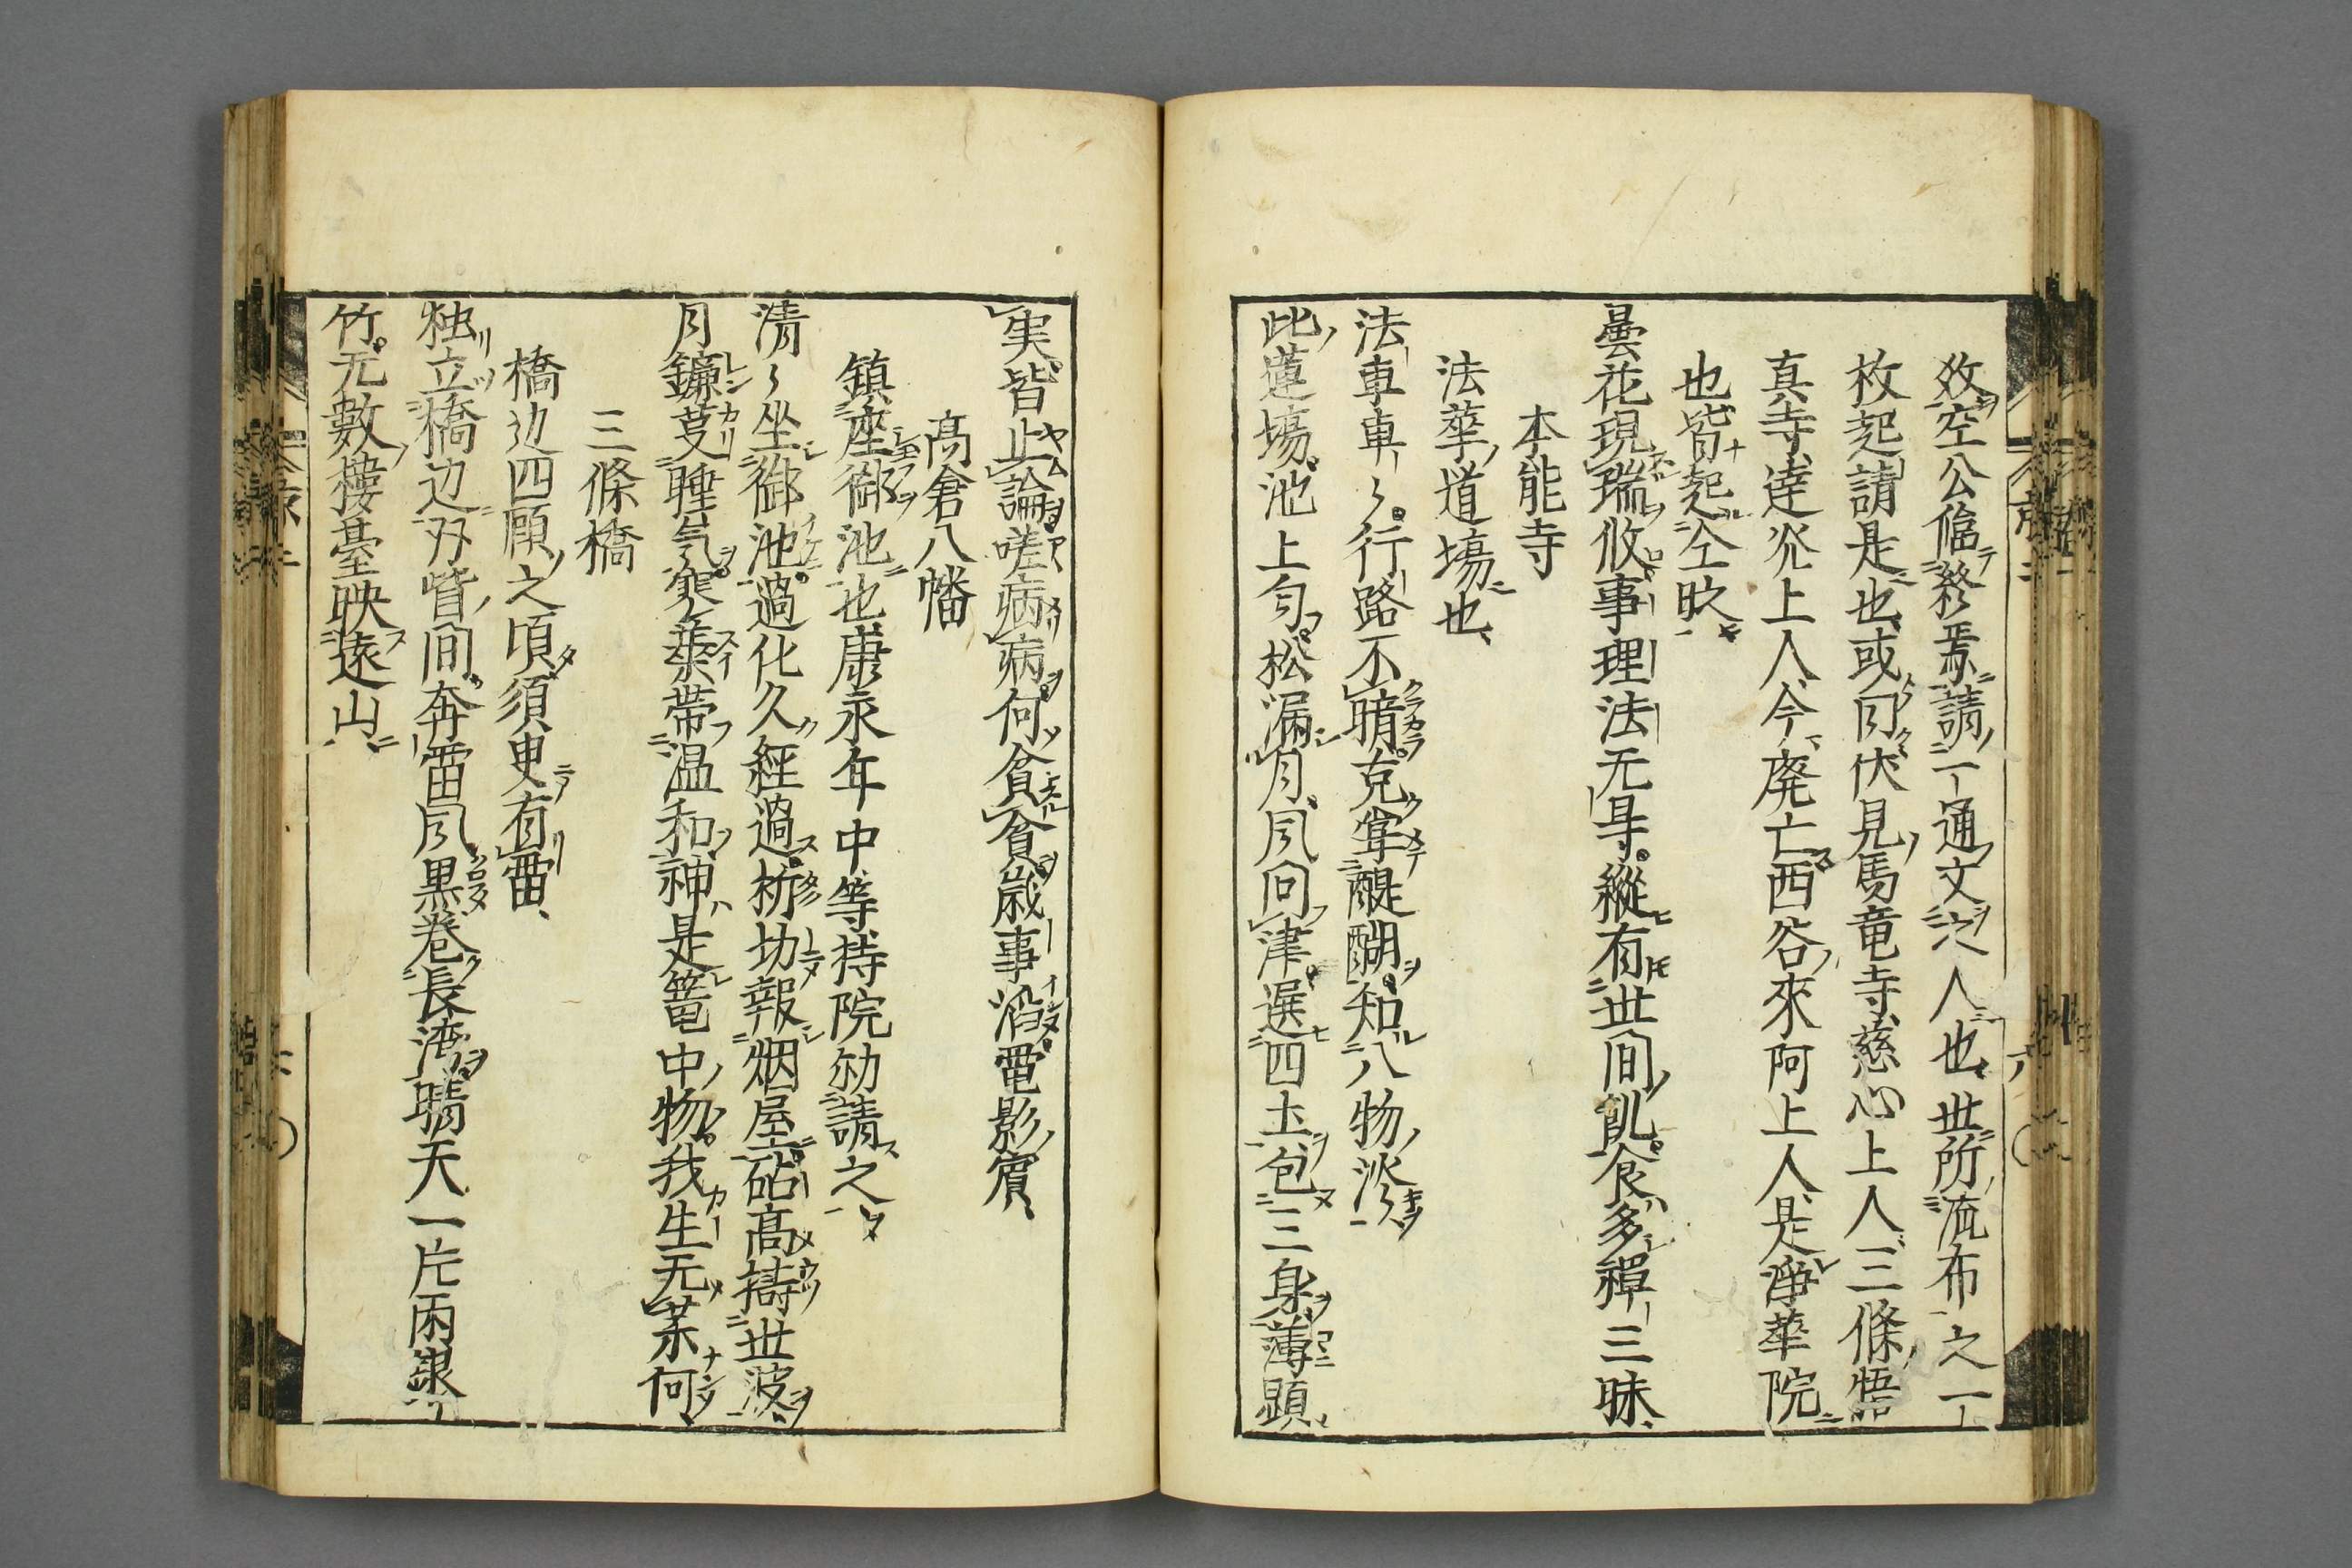 效空公臨終焉請一通文之人也世所流布之一
枚起請是也或同伏見馬竜寺慈心上人三條悟
真寺達光上人今廃亡西谷來阿上人是淨華院
也皆起仝欤
曇花現瑞攸事理法无导縦有世間飢食多禪三昧
本能寺
法華道塲也
法車車〻行路不暗克掌醍醐知八物淡
此蓮塲池上匂松漏月风问津選四土包三身薄顕
実皆止論嗟病病何貧貧歳事滔電影賓
髙倉八幡
鎮座御池也康永年中等持院劫請之
清〻坐御池過化久經過祈功報烟屋砧高擣世波
月鐮芟睡気襖葉帯温和神是篭中物我生无茉何
三條橋
橋边四顧之頃須臾有雷
独立橋边刄眥间奔雷风黒巻長湾晴天一片雨銀
竹无數樓臺映遠山